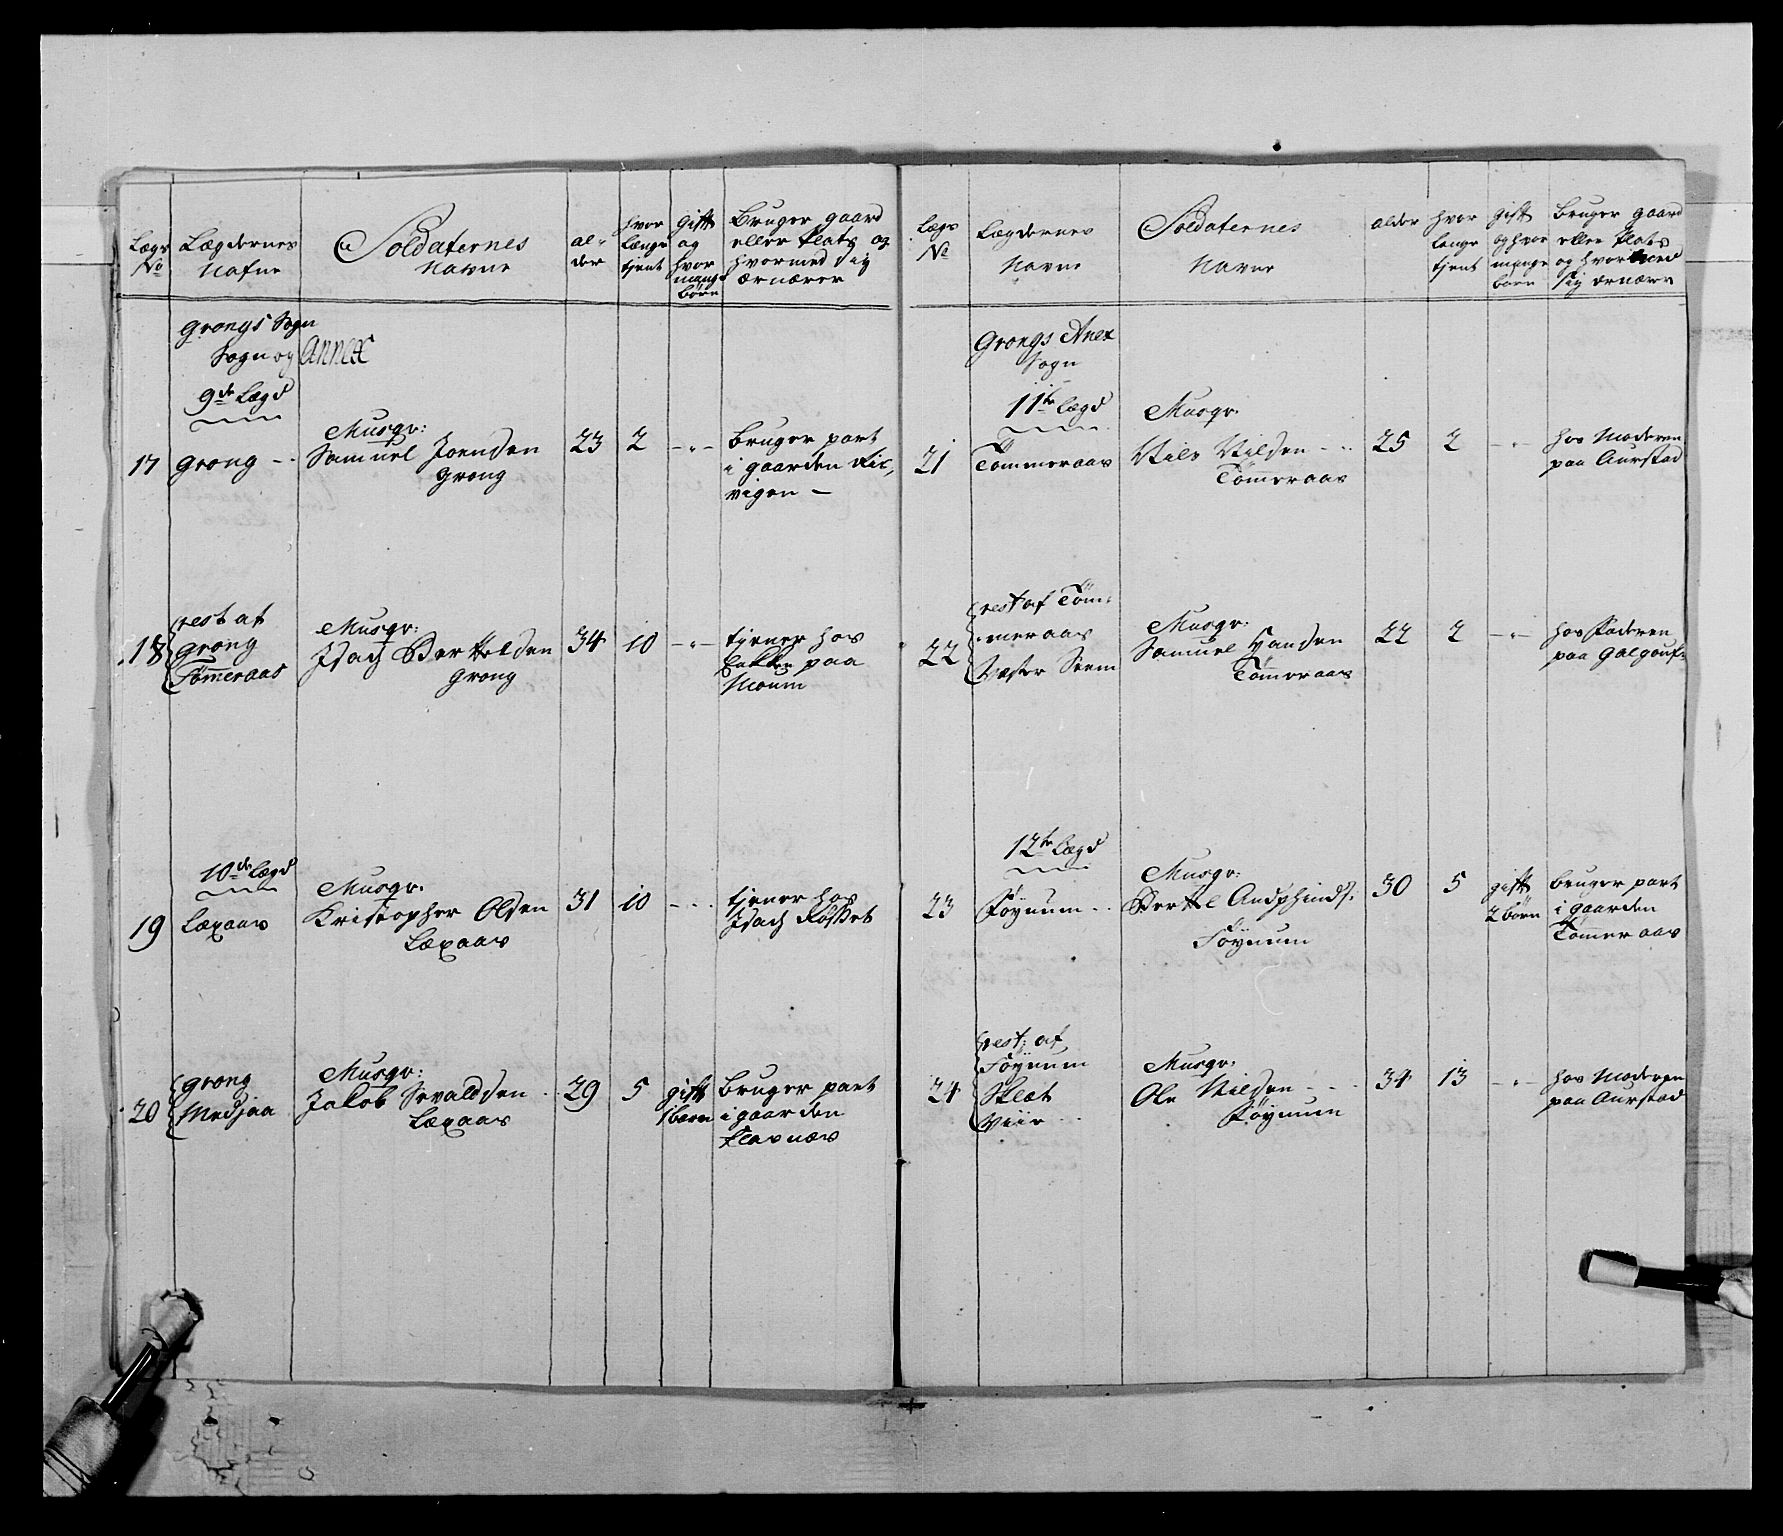 Lægs No
Lægdernes Nafne
Soldaternes Navne
al- der
hvor længe tjent
gift og hvor mange börn
Bruger gaard eller Plats og hvormed sig ernærer
Grongs Sogn
Sogn og Annex
9de Lægd
17 Grong --
Musqr:
Samuel Joensen
Grong
23 2 -"-
bruger part
i gaarden
vigen -
18 rest af
Grong
Tömeraas
Musqr:
Isach Bertelsen
Grong
34 10 -"-
tjener hos
paa
Moum
10de Lægd
19 Læxaas
Musqr.
Kristopher Olsen
Læxaas
31 10 - - -
tjener hos
Isach Røsset
20 Grong
Medjaa
Musqr:
Jakob Sivaldsen
Læxaas
29 5 gift
1 bærn
bruger part
i gaarden
Lægs No
Lægdernes Navne
Soldaternes Navne
alder
hvor længe tjent
gift og hvor mange born
bruger gaard eller Plats og hvormed sig ernærer
Grongs Anex
Sogn
11te Lægd
21 Tømmeraas
Musqr.
Nils Nilsen - -
Tömeraas
25 2 -"-
hos Moderen
paa Aurstad
22 rest af Tøm-
meraas
Væster Seem
Musqr:
Samuel Hansen
Tömeraas
22 2 -"-
hos Faderen
paa
12te Lægd
23 Föynum --
Musqr:
Bertel
Föynum
30 5 gift
2 börn
bruger part
i gaarden
Tömeraas
24 rest: af
Föynum
Sklæt
Viir
Musqr:
Ole Nilsen - - -
Föynum
34 13 -"-
hos Moderen
paa Aurstad